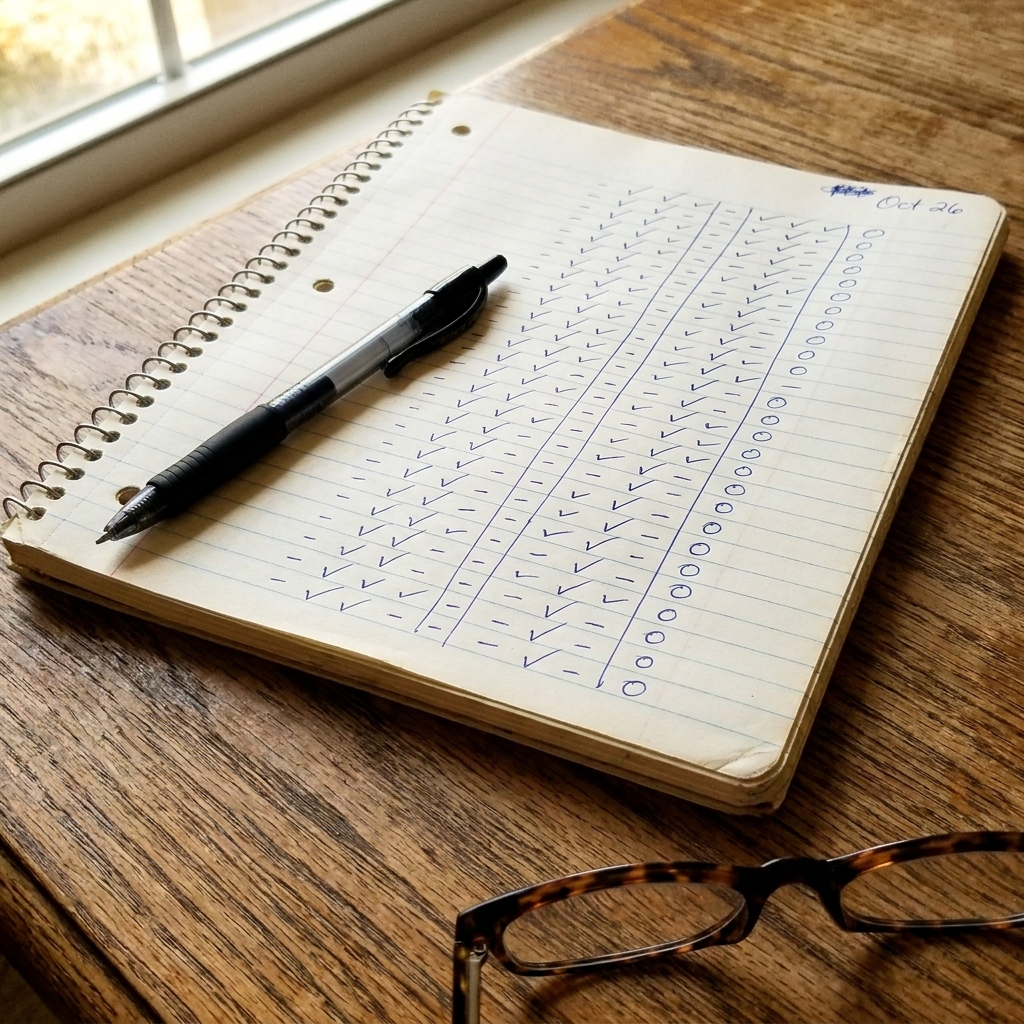 Oct 26